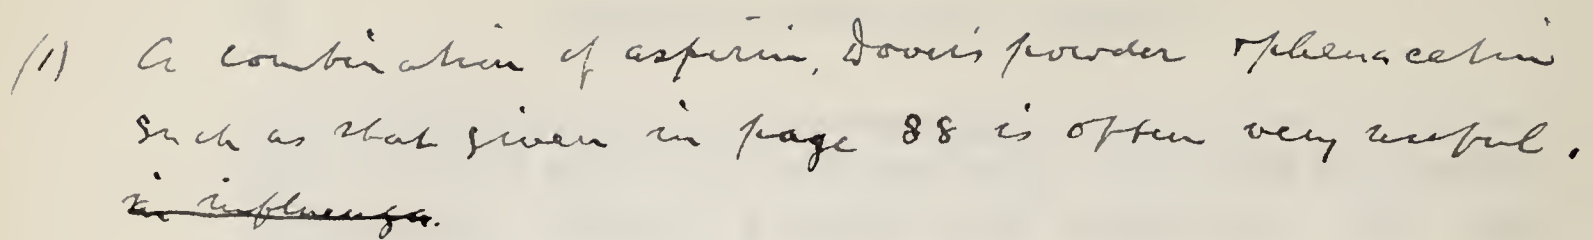 (1) A combination of aspirin, Dover's powder & phenacetin
such as that given in page 88 is often very useful.
in influenza.